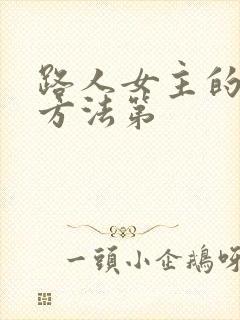 路人女主的
方法第
一頭小企鵝呀